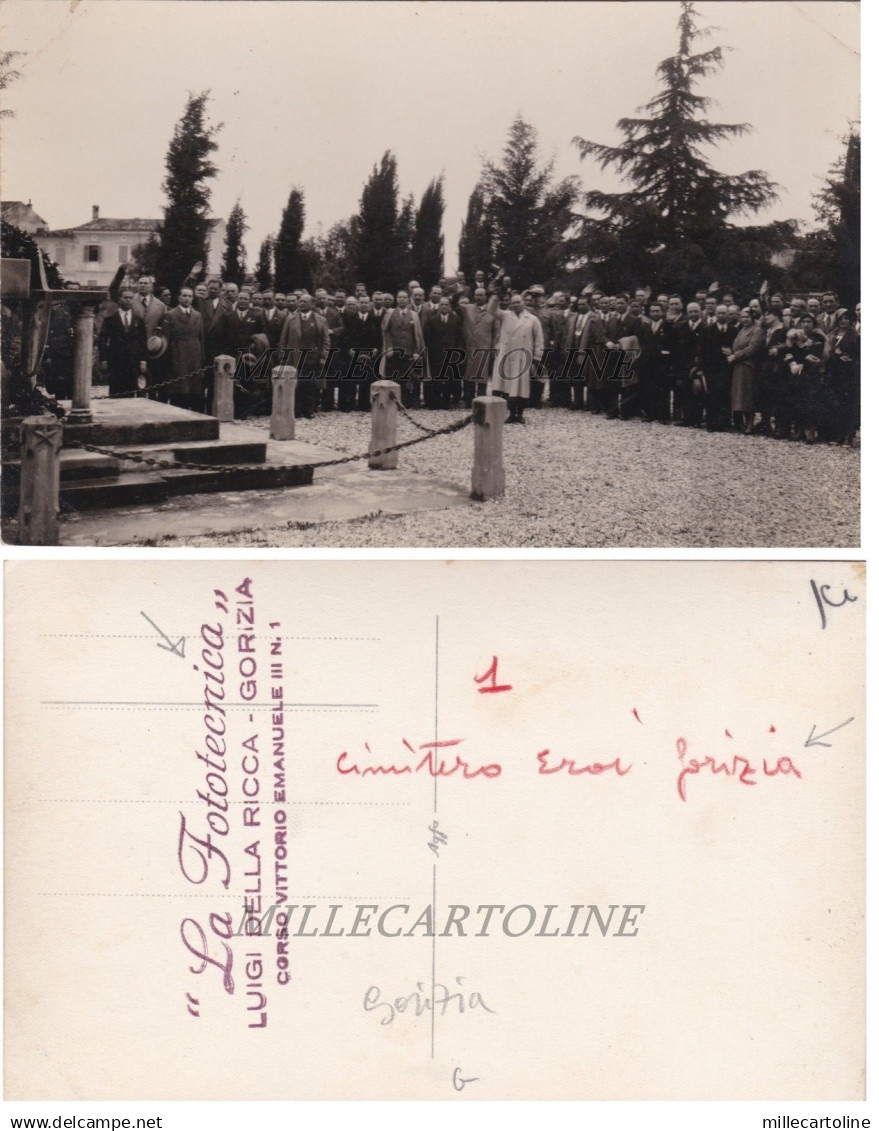 MILLECARTOLINE
Ki
1
cimitero Eroi gorizia
"La Fototecnica"
LUIGI DELLA RICCA - GORIZIA
CORSO VITTORIO EMANUELE III N. 1
Agfa
MILLECARTOLINE
Gorizia
G
millecartoline